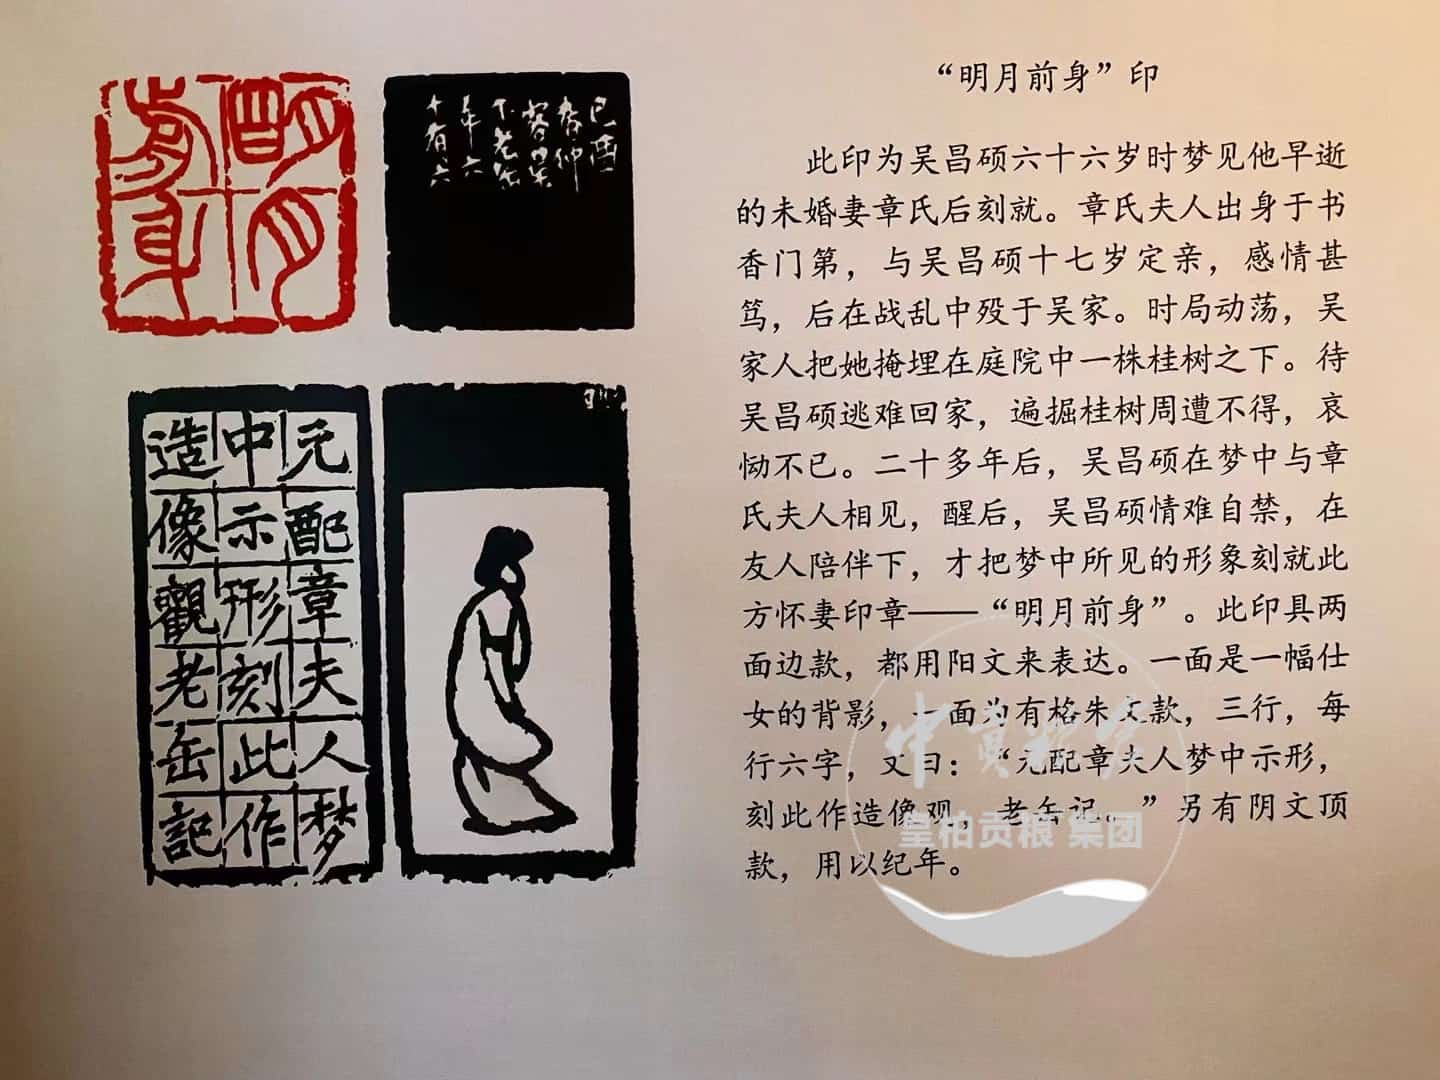 明月
前身
己酉
春仲
客吳
下老缶
年六
十有六
元配章夫人梦
中示形刻此作
造像觀老缶記
“明月前身”印
此印为吴昌硕六十六岁时梦见他早逝
的未婚妻章氏后刻就。章氏夫人出身于书
香门第，与吴昌硕十七岁定亲，感情甚
笃，后在战乱中殁于吴家。时局动荡，吴
家人把她掩埋在庭院中一株桂树之下。待
吴昌硕逃难回家，遍掘桂树周遭不得，哀
恸不已。二十多年后，吴昌硕在梦中与章
氏夫人相见，醒后，吴昌硕情难自禁，在
友人陪伴下，才把梦中所见的形象刻就此
方怀妻印章——“明月前身”。此印具两
面边款，都用阳文来表达。一面是一幅仕
女的背影，一面为有格朱文款，三行，每
行六字，文曰：“元配章夫人梦中示形，
刻此作造像观，老缶记。”另有阴文顶
款，用以纪年。
皇柏贡粮 集团